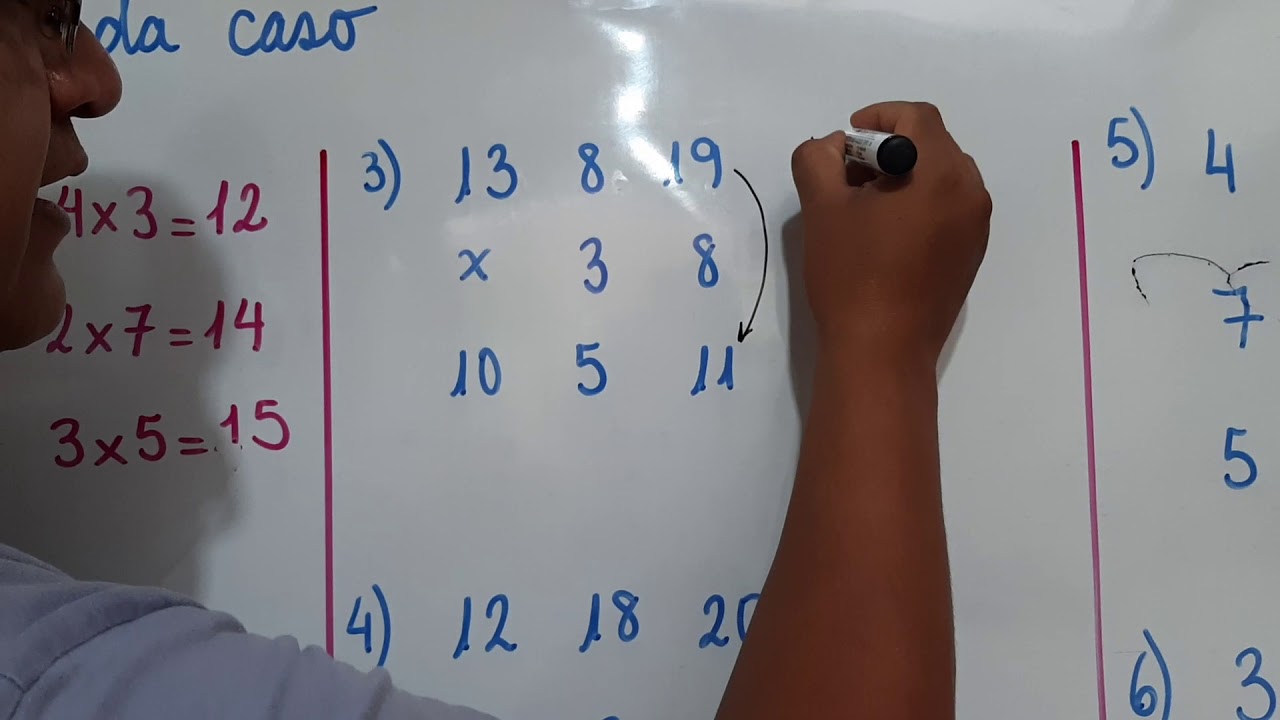 da caso
4x3=12
2x7=14
3x5=15
3) 13 8 19
x 3 8
10 5 11
4) 12 18 20
5) 4
7
5
6) 3